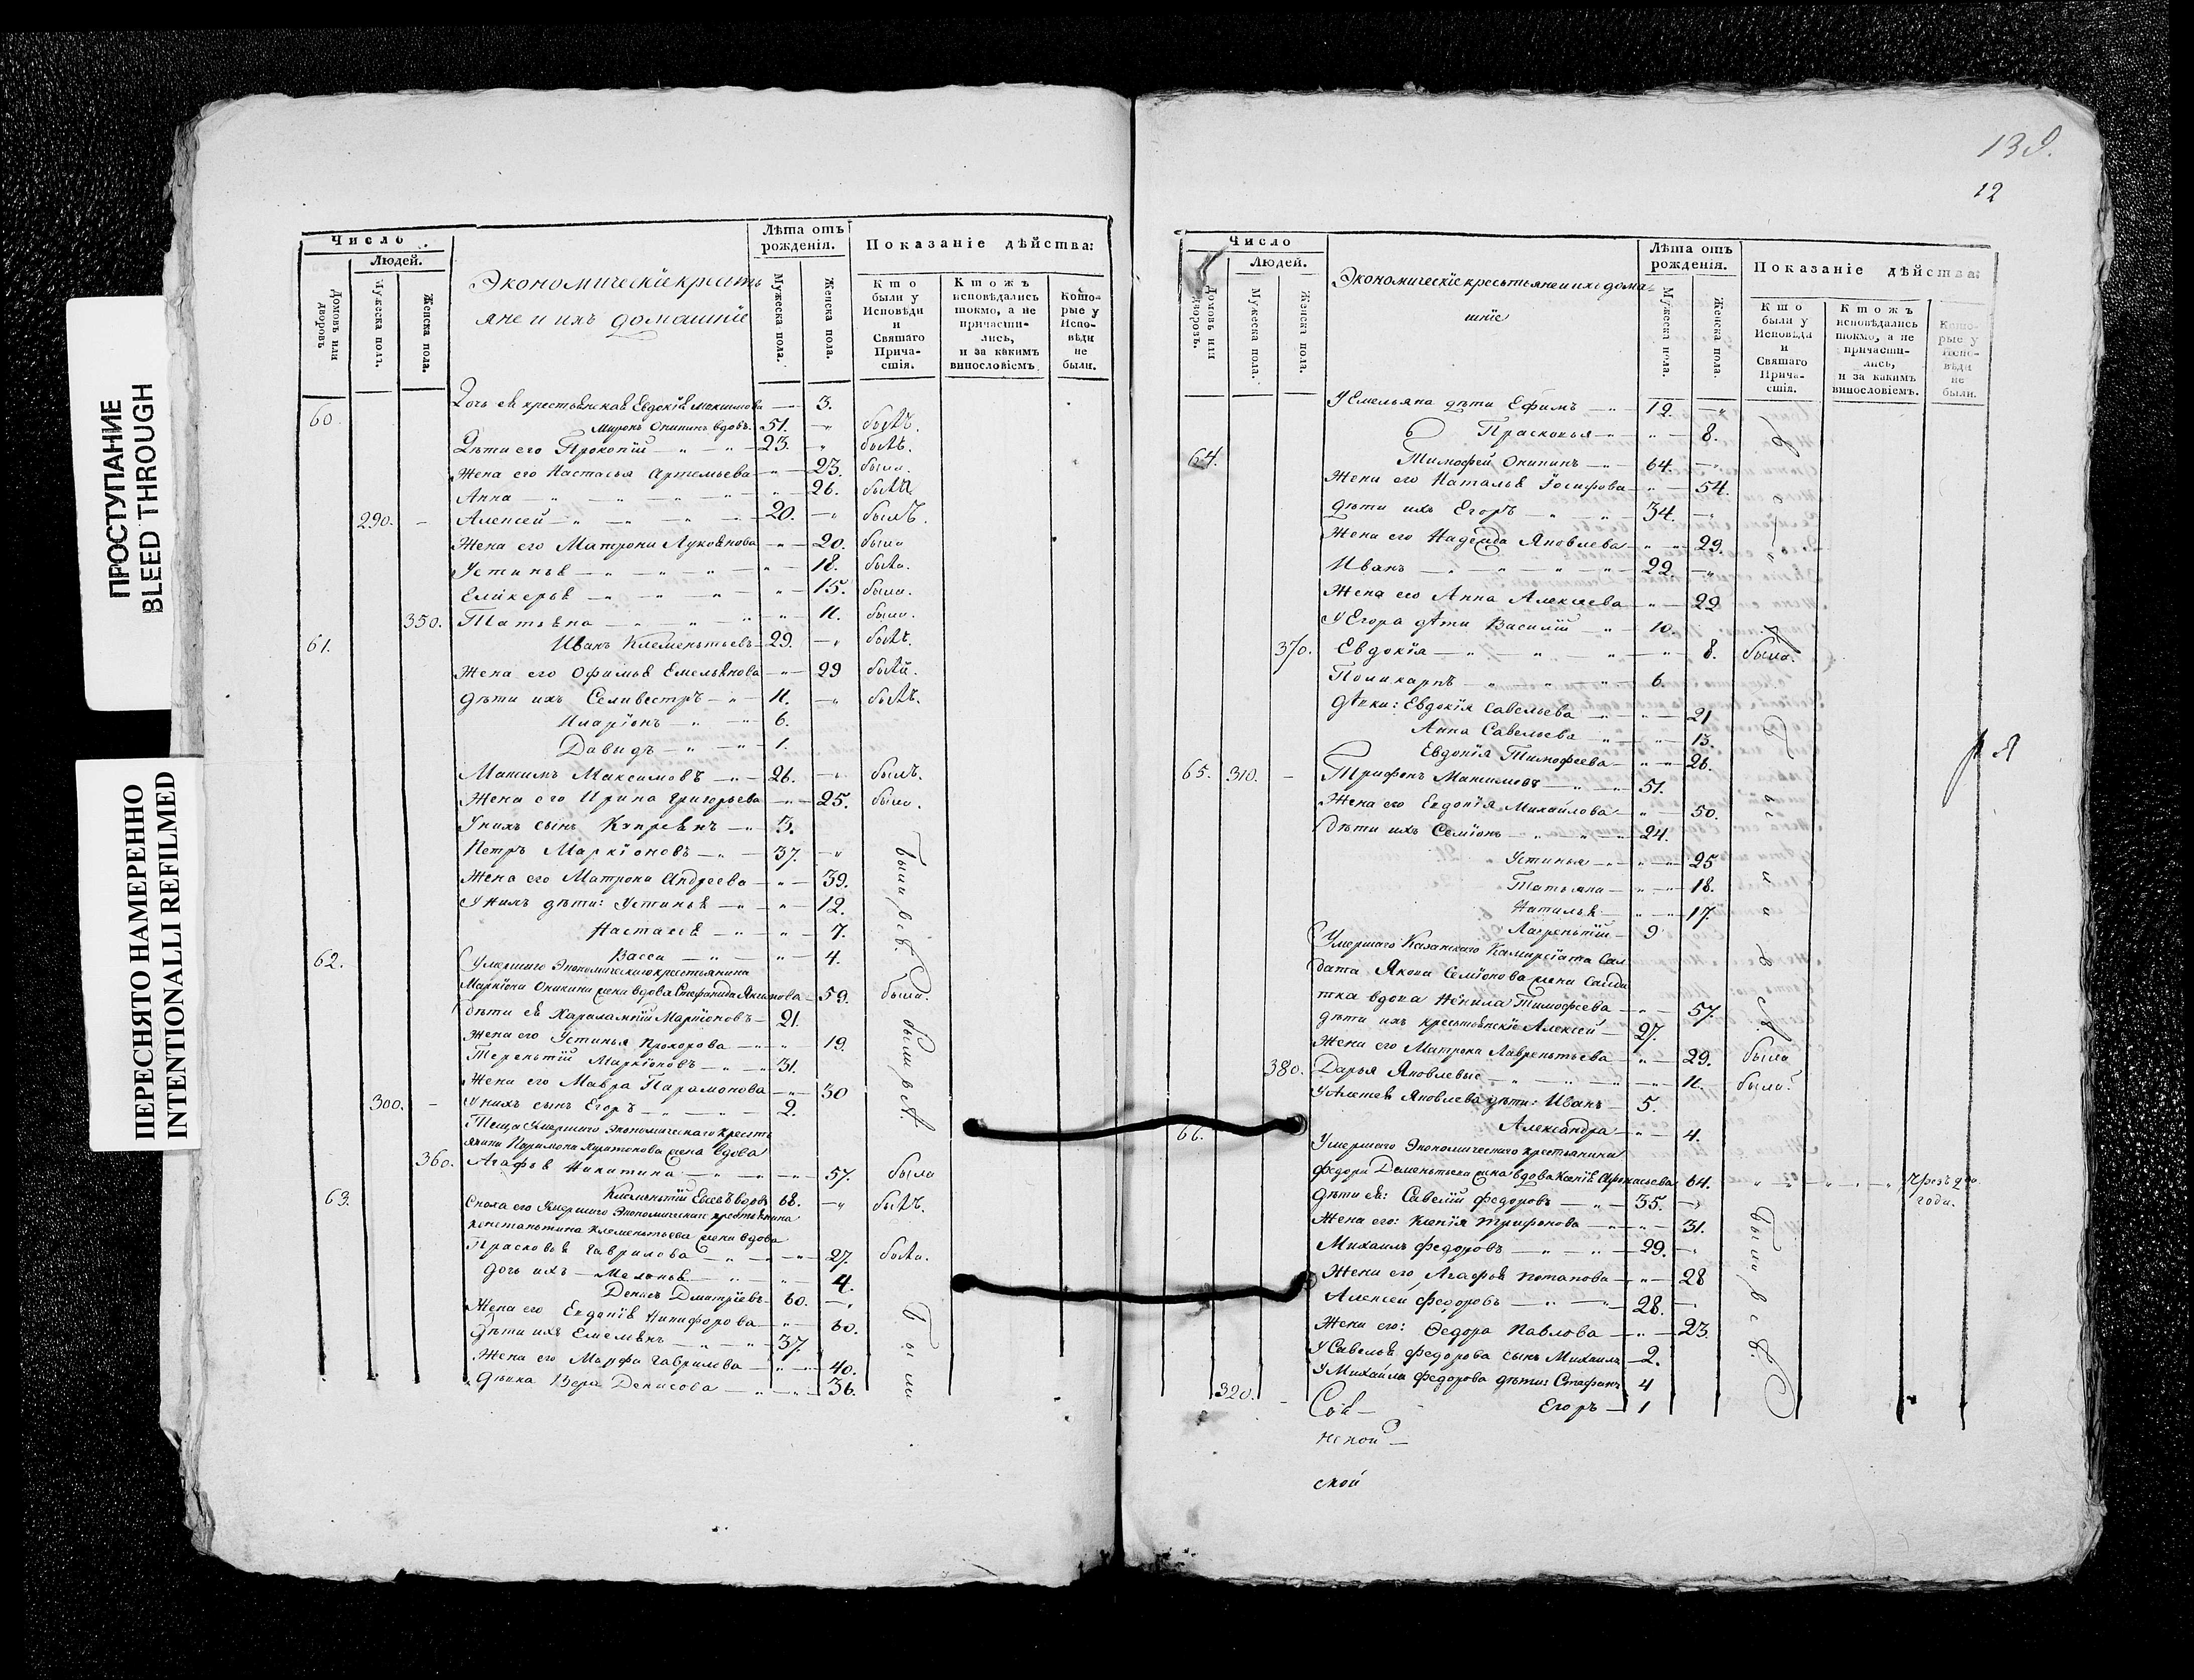 ПРОСТУПАНИЕ
BLEED THROUGH
ПЕРЕСНЯТО НАМЕРЕННО
INTENTIONALLI REFILMED
Число
Людей.
Домовъ или дворовъ
Мужеска полъ.
Женска пола.
Экономическїе кресть
яне и ихъ домашнїе
Лѣта отъ рожденія.
Мужеска пола.
Женска пола.
Показаніе дѣйства:
Кто были у Исповѣди и Святаго Причастія.
Ктожъ исповѣдались токмо, а не причастились, и за какимъ винословіемъ.
Которые у Исповѣди не были.
Дочь ея крестьянская Евдокїя Максимова — 3.
60. Миронъ Оникинъ вдовъ. 51. былъ.
Дѣти его Прокопїй — 23. былъ.
Жена его Настасья Артемьева — 23. была.
Анна — 26. была
290. Алексей — 20. былъ.
Жена его Матрона Лукоянова — 20. была
Устинья — 18. была.
Гликерья — 15. была.
350. Татьяна — 11. была.
61. Иванъ Клементьевъ — 29. былъ.
Жена его Офимья Емельянова — 29 была.
Дѣти ихъ Селивестръ — 11. былъ.
Иларїонъ — 6.
Давидъ — 1.
Максимъ Максимовъ — 26. былъ.
Жена его Ирина Григорьева — 25. была.
У нихъ сынъ Кипреянъ — 3.
Петръ Маркїоновъ — 37.
Жена его Матрона Андреева — 39.
У нихъ дѣти: Устинья — 12.
Настасья — 7.
Васса — 4.
62. Умершаго Экономическаго крестьянина
Маркїона Оникина жена вдова Стефанида Якимова — 59. была.
Дѣти ея Харалампїй Маркїоновъ — 21.
Жена его Устинья Прохорова — 19.
Терентїй Маркїоновъ — 31.
Жена его Мавра Парамонова — 30
300. У нихъ сынъ Егоръ — 2.
Теща Умершаго Экономическаго кресть
янина Парамона Харитонова жена вдова
360. Агафья Никитина — 57. была
63. Клементїй Евсевъ вдовъ 68. былъ.
Сноха его Умершаго Экономическаго крестьянина
Константина Клементьева жена вдова
Прасковья Гаврилова — 27. была.
Дочь ихъ — Меланья — 4.
Денисъ Дмитрїевъ — 60.
Жена его Евдокїя Никифорова — 60.
Дѣти ихъ Емельянъ — 37.
Жена его Марфа Гаврилова — 40.
Дѣвка Вера Денисова — 36.
Были
139.
12
Число
Людей.
Домовъ или дворовъ.
Мужеска пола.
Женска пола.
Экономическїе крестьяне и ихъ дома-
шнїе
Лѣта отъ рожденія.
Мужеска пола.
Женска пола.
Показаніе дѣйства:
Кто были у Исповѣди и Святаго Причастія.
Ктожъ исповѣдались токмо, а не причастились, и за какимъ винословіемъ.
Которые у Исповѣди не были.
У Емельяна дѣти Ефимъ — 12.
Прасковья — 8.
64. Тимофей Оникинъ — 64.
Жена его Наталья Їосифова — 54.
Дѣти ихъ Егоръ — 34.
Жена его Надежда Яковлева — 29.
Иванъ — 22.
Жена его Анна Алексеева — 22
У Егора дѣти Василїй — 10.
370. Евдокїя — 8. была.
Поликарпъ — 6.
Дѣвки: Евдокїя Савельева — 21
Анна Савельева — 13.
Евдокїя Тимофеева — 26.
65. 310. Трифонъ Максимовъ — 51.
Жена его Евдокїя Михайлова — 50.
Дѣти ихъ Семїонъ — 24.
Устинья — 25
Татьяна — 18.
Наталья — 17.
Лаврентїй — 9
Умершаго Казанскаго Камисїата Сал
дата Якова Семїонова жена Салда
тка вдова Ненила Тимофеева — 57.
Дѣти ихъ крестьянскїе Алексей — 27.
Жена его Матрона Лаврентьева — 29. была
380. Дарья Яковлевы — 11. была.
У Алексея Яковлева дѣти: Иванъ — 5.
Александра — 4.
66. Умершаго Экономическаго крестьянина
Федора Дементьева жена вдова Ксенїя Афонасьева 64. чрезъ 2
года.
Дѣти ея: Савелїй Федоровъ — 35.
Жена его: Ксенїя Трифонова — 31.
Михаилъ Федоровъ — 29.
Жена его Агафья Потапова — 28
Алексей Федоровъ — 28.
Жена его: Федора Павлова — 23.
У Савелья Федорова сынъ Михаилъ — 2.
У Михаила Федорова дѣти: Стефанъ 4
320. Егоръ — 1
Были все.
ской